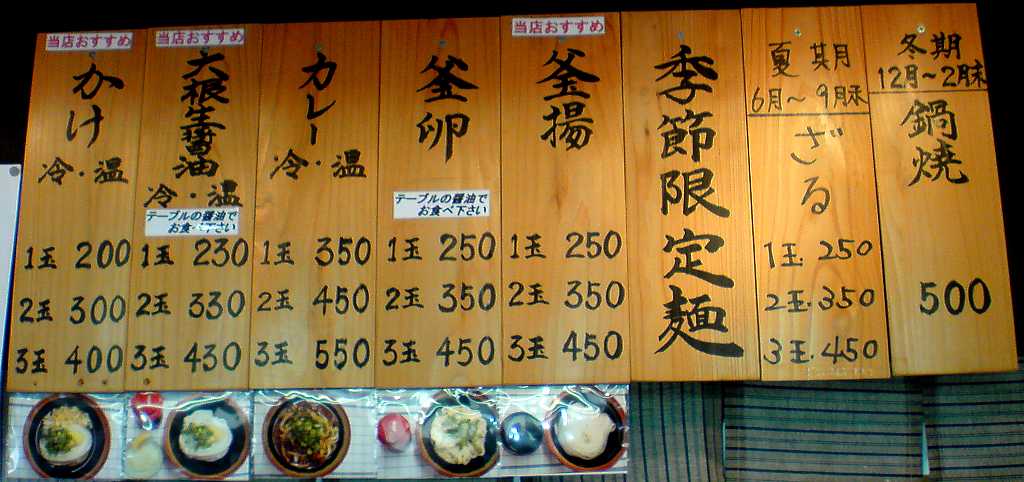 当店おすすめ
かけ
冷・温
1玉 200
2玉 300
3玉 400
当店おすすめ
大根生醤油
冷・温
テーブルの醤油で
お食べ下さい
1玉 230
2玉 330
3玉 430
カレー
冷・温
1玉 350
2玉 450
3玉 550
釜卵
テーブルの醤油で
お食べ下さい
1玉 250
2玉 350
3玉 450
当店おすすめ
釜揚
1玉 250
2玉 350
3玉 450
季節限定麺
夏期月
6月～9月末
ざる
1玉.250
2玉.350
3玉.450
冬期
12月～2月末
鍋焼
500